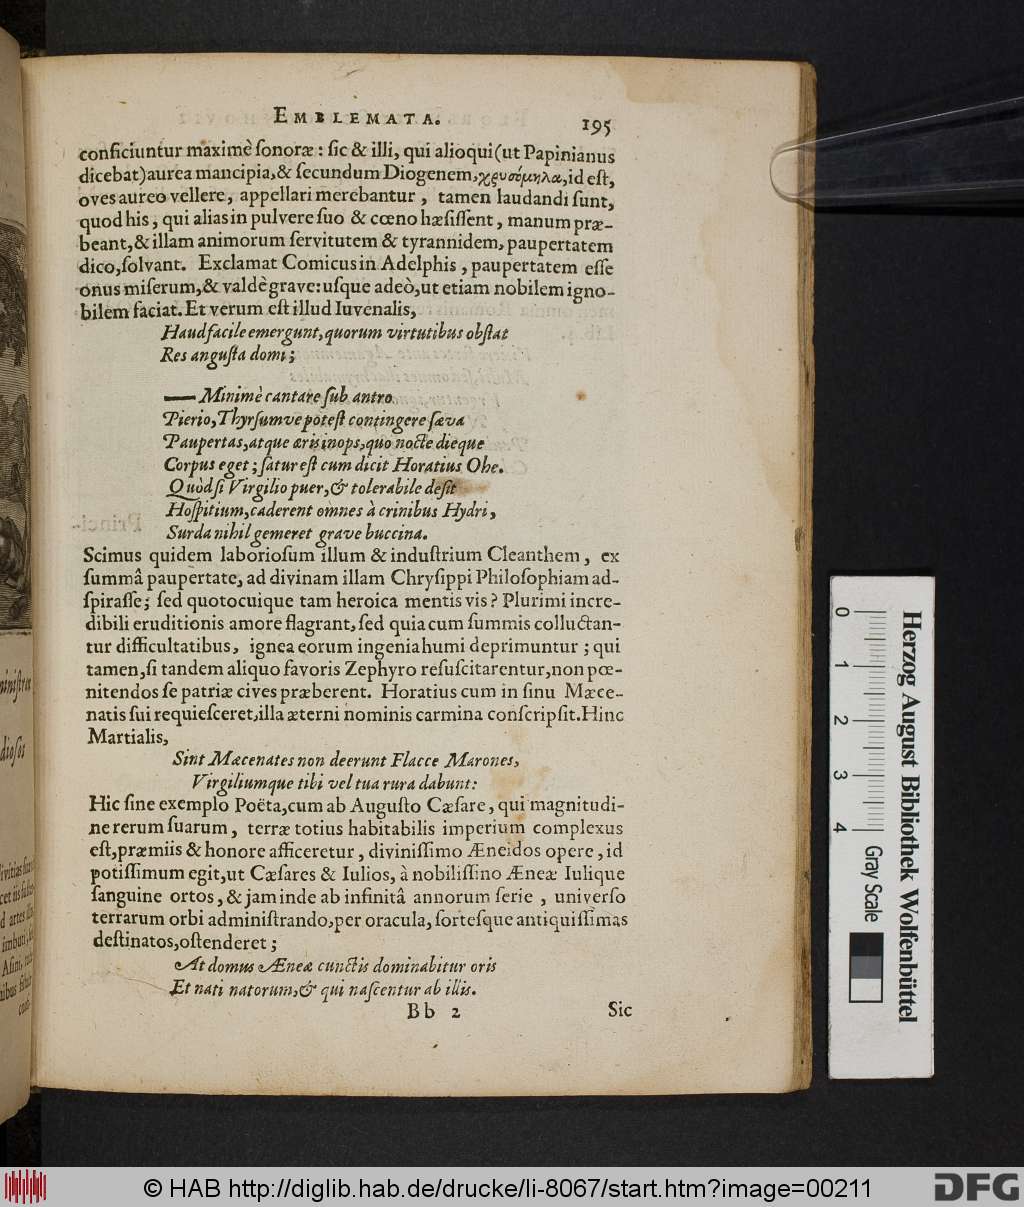 EMBLEMATA. 195
conficiuntur maximè ſonoræ : ſic & illi, qui alioqui (ut Papinianus
dicebat) aurea mancipia, & ſecundum Diogenem, χρυσόμηλα, id eſt,
oves aureo vellere, appellari merebantur , tamen laudandi ſunt,
quod his , qui alias in pulvere ſuo & cœno hæſiſſent , manum præ-
beant, & illam animorum ſervitutem & tyrannidem, paupertatem
dico, ſolvant. Exclamat Comicus in Adelphis , paupertatem eſſe
onus miſerum, & valdè grave: uſque adeò, ut etiam nobilem igno-
bilem faciat. Et verum eſt illud Iuvenalis,
Haud facile emergunt, quorum virtutibus obſtat
Res anguſta domi ;
— Minimè cantare ſub antro
Pierio, Thyrſumve poteſt contingere ſæva
Paupertas, atque æris inops, quo nocte dieque
Corpus eget ; ſatur eſt cum dicit Horatius Ohe.
Quòd ſi Virgilio puer, & tolerabile deſit
Hoſpitium, caderent omnes à crinibus Hydri ,
Surda nihil gemeret grave buccina.
Scimus quidem laborioſum illum & induſtrium Cleanthem , ex
ſummâ paupertate, ad divinam illam Chryſippi Philoſophiam ad-
ſpiraſſe ; ſed quotocuique tam heroica mentis vis ? Plurimi incre-
dibili eruditionis amore flagrant, ſed quia cum ſummis colluctan-
tur difficultatibus, ignea eorum ingenia humi deprimuntur ; qui
tamen, ſi tandem aliquo favoris Zephyro reſuſcitarentur, non pœ-
nitendos ſe patriæ cives præberent. Horatius cum in ſinu Mæce-
natis ſui requieſceret, illa æterni nominis carmina conſcripſit. Hinc
Martialis,
Sint Mæcenates non deerunt Flacce Marones,
Virgiliumque tibi vel tua rura dabunt:
Hic ſine exemplo Poëta, cum ab Auguſto Cæſare , qui magnitudi-
ne rerum ſuarum , terræ totius habitabilis imperium complexus
eſt, præmiis & honore afficeretur , diviniſſimo Æneidos opere , id
potiſſimum egit, ut Cæſares & Iulios, à nobiliſſino Æneæ Iulique
ſanguine ortos , & jam inde ab infinitâ annorum ſerie , univerſo
terrarum orbi adminiſtrando, per oracula, ſorteſque antiquiſſimas
deſtinatos, oſtenderet ;
At domus Æneæ cunctis dominabitur oris
Et nati natorum, & qui naſcentur ab illis.
Bb 2 Sic
0 1 2 3 4
Gray Scale
Herzog August Bibliothek Wolfenbüttel
© HAB http://diglib.hab.de/drucke/li-8067/start.htm?image=00211
DFG